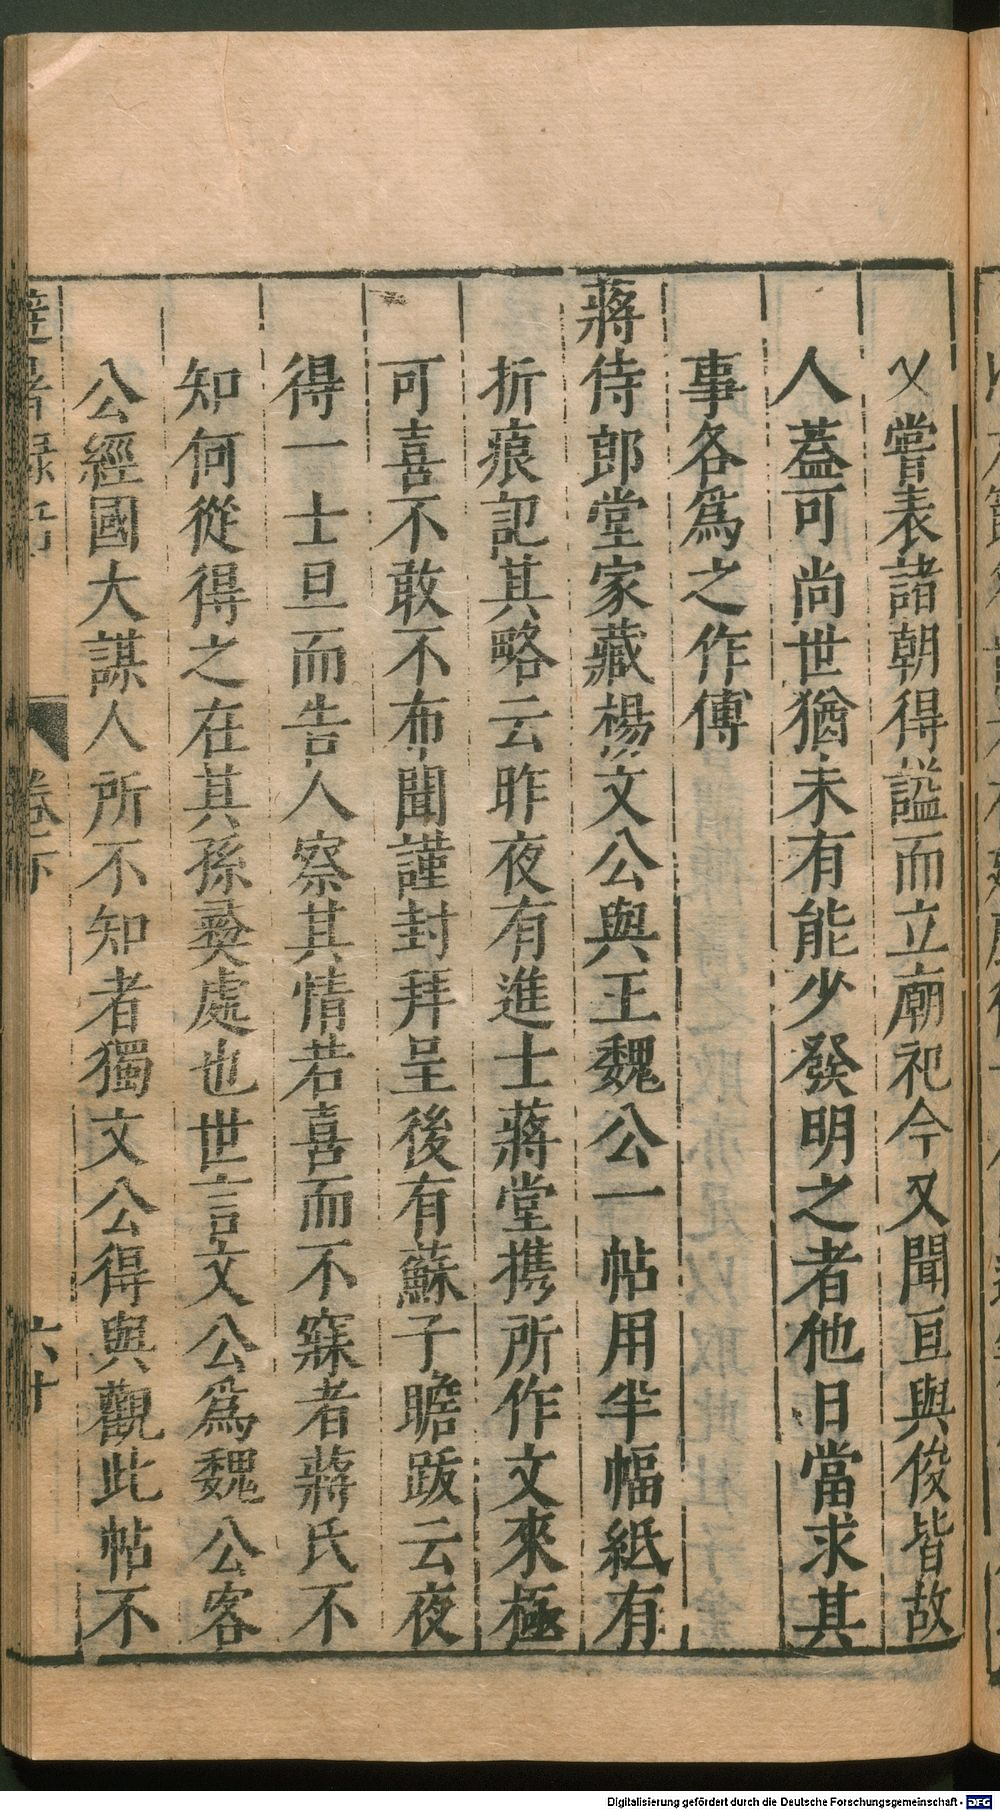 又嘗表諸朝得謚而立廟祀今又聞亘與俊皆故
人蓋可尚世猶未有能少發明之者他日當求其
事各爲之作傳
蔣侍郎堂家藏楊文公與王魏公一帖用半幅紙有
折痕記其略云昨夜有進士蔣堂携所作文來極
可喜不敢不布聞謹封拜呈後有蘇子瞻跋云夜
得一士旦而告人察其情若喜而不寐者蔣氏不
知何從得之在其孫彝處也世言文公爲魏公客
公經國大謀人所不知者獨文公得與觀此帖不
避暑錄話 卷下 六十
Digitalisierung gefördert durch die Deutsche Forschungsgemeinschaft - DFG